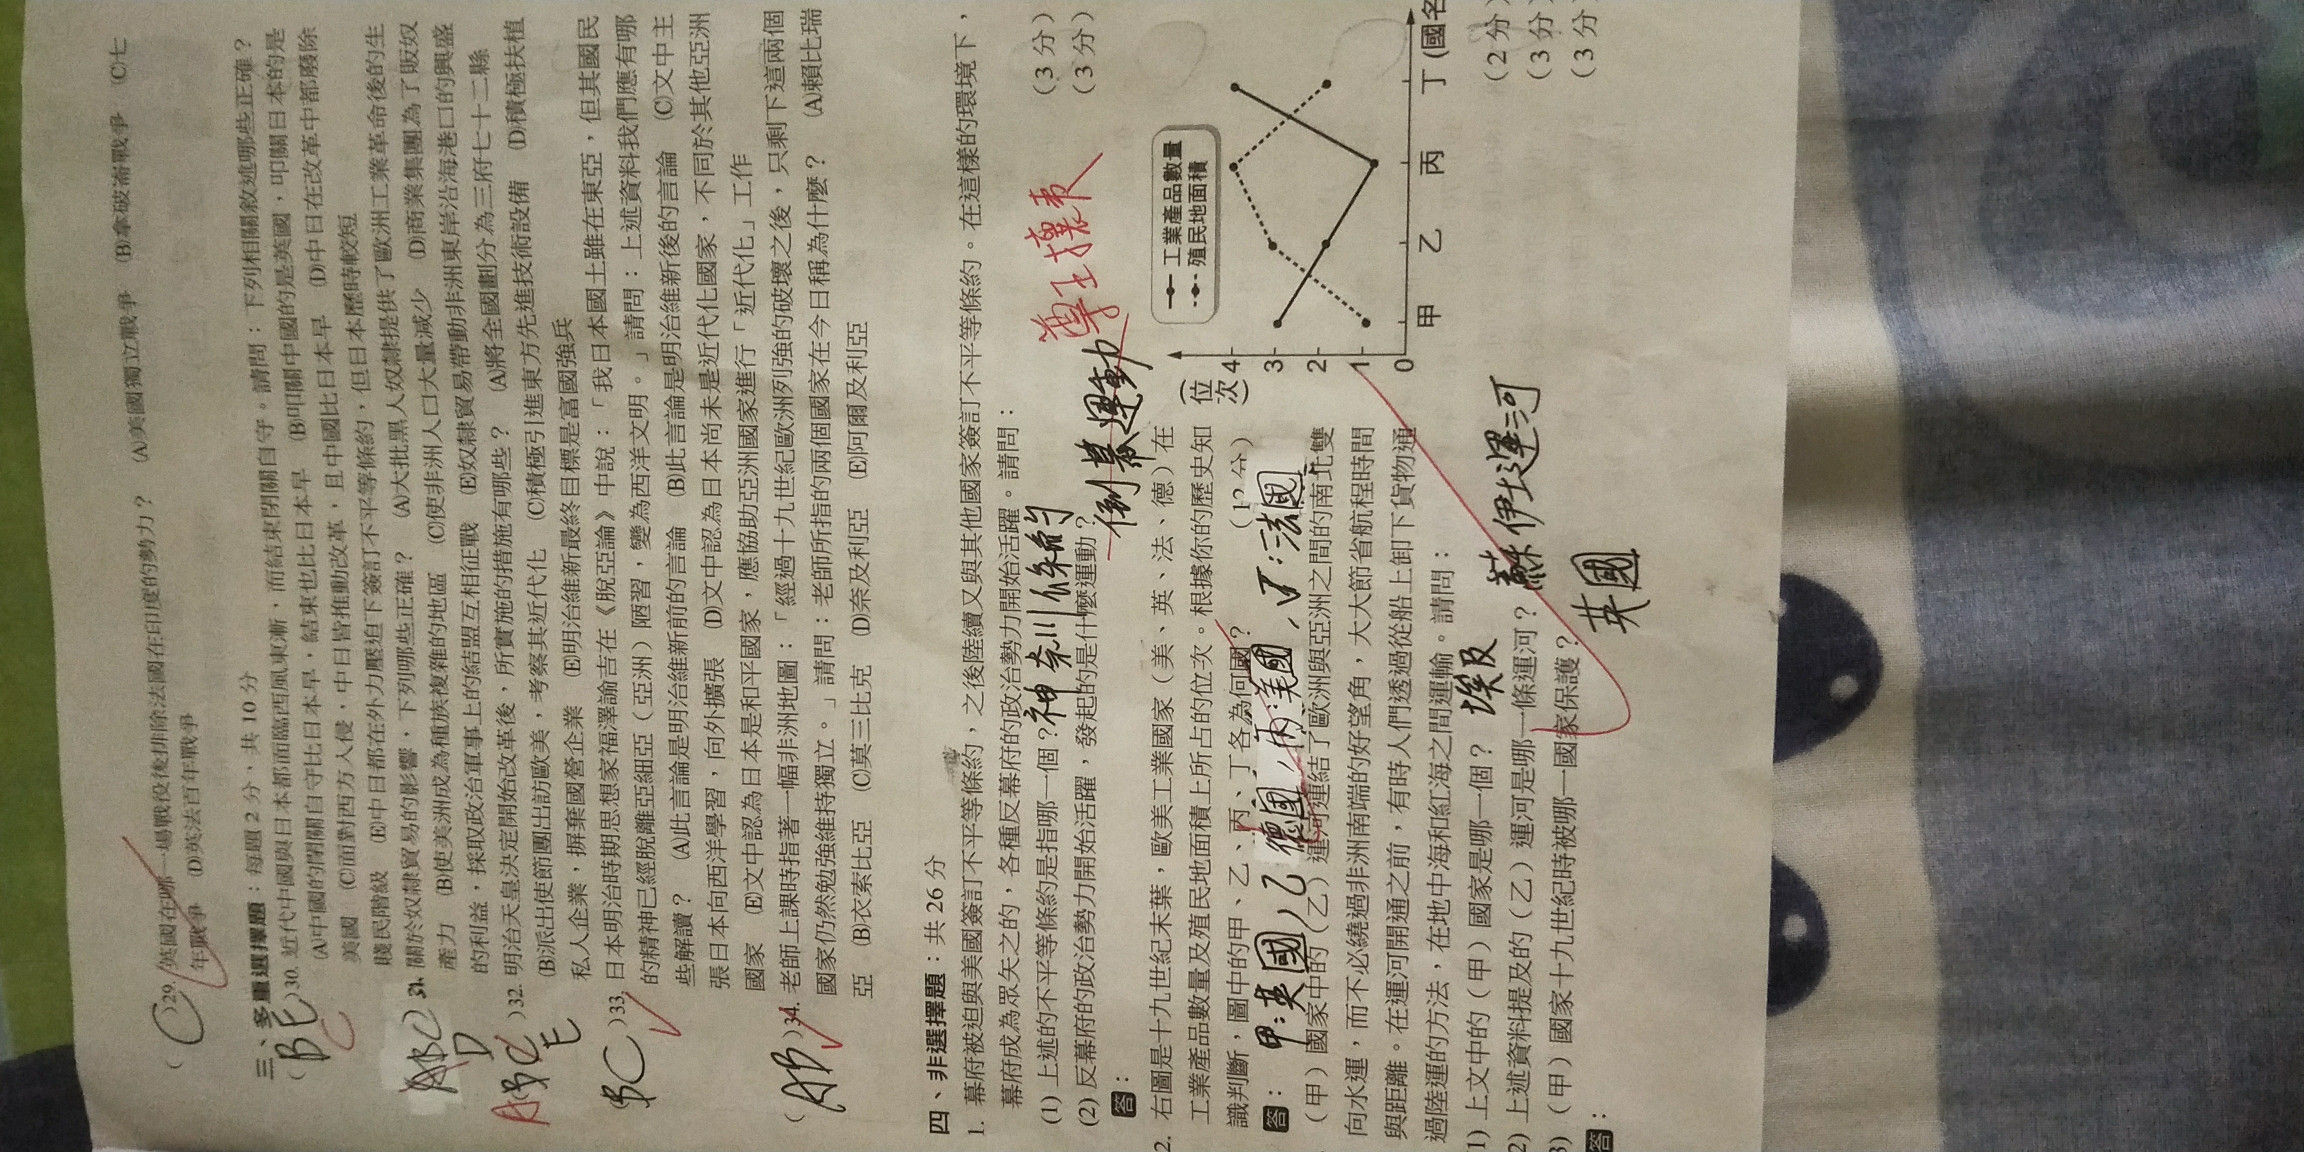 (C)29. 英國在哪一場戰役後排除法國在印度的勢力? (A)美國獨立戰爭 (B)拿破崙戰爭 (C)七
年戰爭 (D)英法百年戰爭
三、多重選擇題:每題 2 分,共 10 分
(BE C)30. 近代中國與日本都面臨西風東漸,而結束閉關自守。請問:下列相關敘述哪些正確?
(A)中國的閉關自守比日本早,結束也比日本早 (B)叩關中國的是英國,叩關日本的是
美國 (C)面對西方入侵,中日皆推動改革,且中國比日本早 (D)中日在改革中都廢除
賤民階級 (E)中日都在外力壓迫下簽訂不平等條約,但日本歷時較短
ABC D 31. 關於奴隸貿易的影響,下列哪些正確? (A)大批黑人奴隸提供了歐洲工業革命後的生
產力 (B)使美洲成為種族複雜的地區 (C)使非洲人口大量減少 (D)商業集團為了販奴
的利益,採取政治軍事上的結盟互相征戰 (E)奴隸貿易帶動非洲東岸沿海港口的興盛
ABC E )32. 明治天皇決定開始改革後,所實施的措施有哪些? (A)將全國劃分為三府七十二縣
(B)派出使節團出訪歐美,考察其近代化 (C)積極引進東方先進技術設備 (D)積極扶植
私人企業,摒棄國營企業 (E)明治維新最終目標是富國強兵
BC )33. 日本明治時期思想家福澤諭吉在《脫亞論》中說:「我日本國土雖在東亞,但其國民
的精神已經脫離亞細亞(亞洲)陋習,變為西洋文明。」請問:上述資料我們應有哪
些解讀? (A)此言論是明治維新前的言論 (B)此言論是明治維新後的言論 (C)文中主
張日本向西洋學習,向外擴張 (D)文中認為日本尚未是近代化國家,不同於其他亞洲
國家 (E)文中認為日本是和平國家,應協助亞洲國家進行「近代化」工作
(AB)34. 老師上課時指著一幅非洲地圖:「經過十九世紀歐洲列強的破壞之後,只剩下這兩個
國家仍然勉強維持獨立。」請問:老師所指的兩個國家在今日稱為什麼? (A)賴比瑞
亞 (B)衣索比亞 (C)莫三比克 (D)奈及利亞 (E)阿爾及利亞
四、非選擇題:共 26 分
1. 幕府被迫與美國簽訂不平等條約,之後陸續又與其他國家簽訂不平等條約。在這樣的環境下,
幕府成為眾矢之的,各種反幕府的政治勢力開始活躍。請問:
(1) 上述的不平等條約是指哪一個?神奈川條約 (3 分)
(2) 反幕府的政治勢力開始活躍,發起的是什麼運動? (3 分)
答: 倒幕運動 尊王攘夷
2. 右圖是十九世紀末葉,歐美工業國家(美、英、法、德)在
工業產品數量及殖民地面積上所占的位次。根據你的歷史知
識判斷,圖中的甲、乙、丙、丁各為何國? (12 分)
答: 甲:英國/乙 德國/丙美國、丁:法國
工業產品數量
殖民地面積
(位次)
4
3
2
1
0
甲 乙 丙 丁 (國名
(甲)國家中的(乙)運河連結了歐洲與亞洲之間的南北雙
向水運,而不必繞過非洲南端的好望角,大大節省航程時間
與距離。在運河開通之前,有時人們透過從船上卸下貨物通
過陸運的方法,在地中海和紅海之間運輸。請問:
1) 上文中的(甲)國家是哪一個? 埃及 (2 分)
2) 上述資料提及的(乙)運河是哪一條運河? 蘇伊士運河 (3 分)
3) (甲)國家十九世紀時被哪一國家保護? 英國 (3 分)
答: